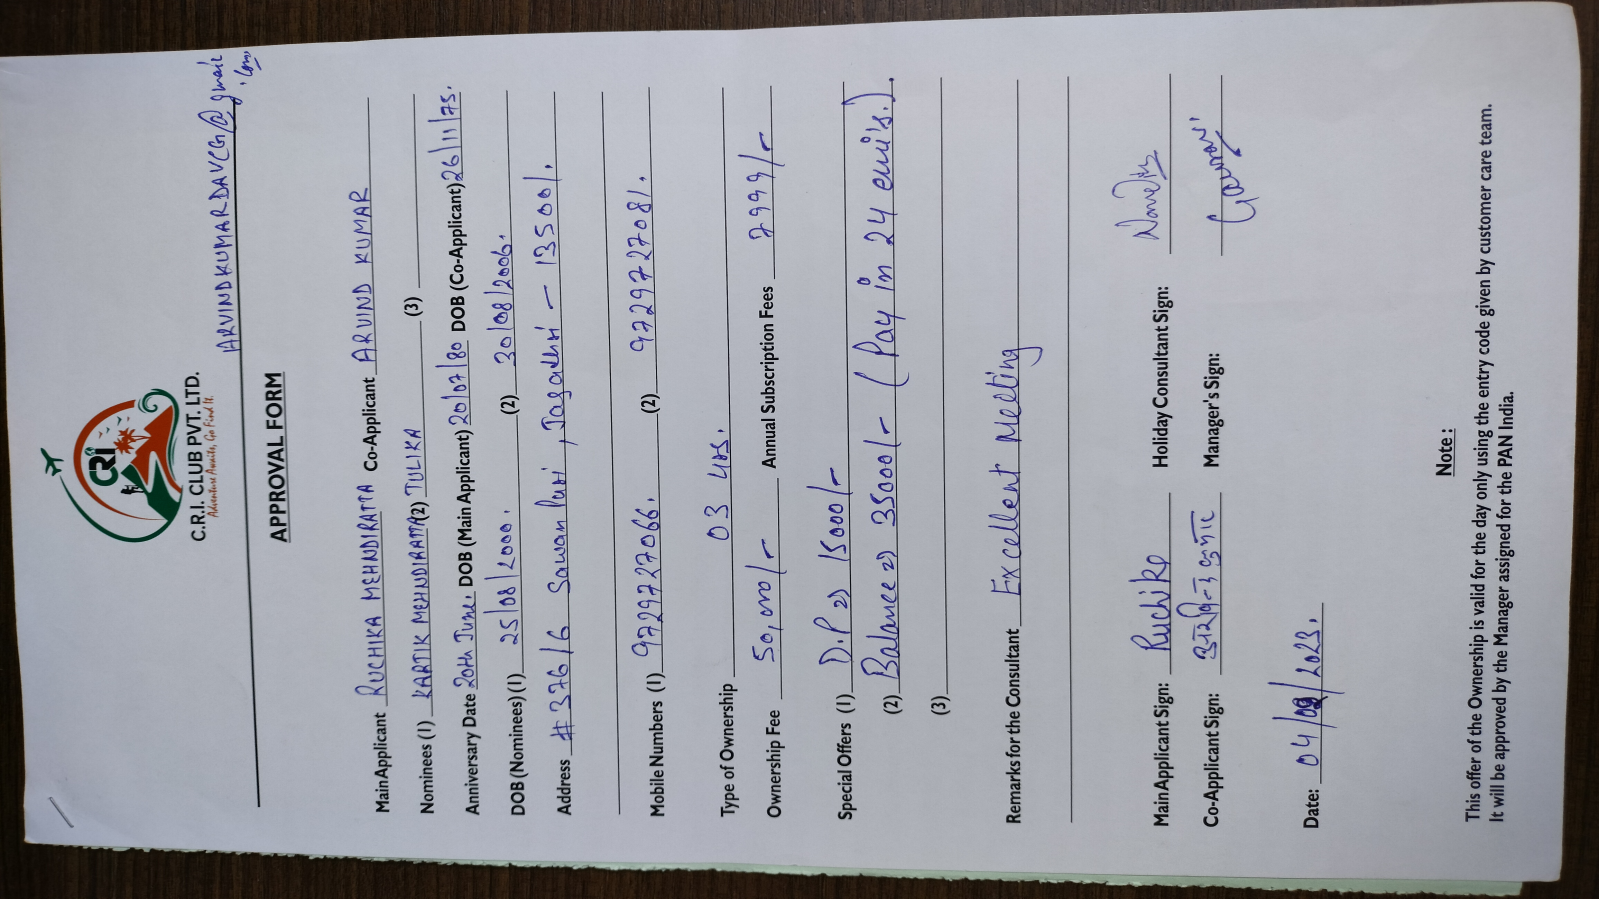 CRI
C.R.I. CLUB PVT. LTD.
Adventure Awaits, Go Find It.
ARVINDKUMARDAVCG@gmail
.com
APPROVAL FORM
Main Applicant RUCHIKA MEHNDIRATTA Co-Applicant ARVIND KUMAR
Nominees (1) KARTIK MEHNDIRATTA (2) TULIKA (3)
Anniversary Date 20th June. DOB (Main Applicant) 20/07/80 DOB (Co-Applicant) 26/11/75.
DOB (Nominees) (1) 25/08/2000. (2) 30/08/2006.
Address #376/6 Sawan Puri, Jagadhri - 135001.
Mobile Numbers (1) 9729727066. (2) 9729727081.
Type of Ownership 03 yrs.
Ownership Fee 50,000/- Annual Subscription Fees 7999/-
Special Offers (1) D.P => 15000/-
(2) Balance => 35000/- (Pay in 24 emi's.).
(3)
Remarks for the Consultant Excellent Meeting
Main Applicant Sign: Ruchika Holiday Consultant Sign:
Co-Applicant Sign: अरविन्द कुमार Manager's Sign: Gaurav
Date: 04/09/2023.
Note :
This offer of the Ownership is valid for the day only using the entry code given by customer care team.
It will be approved by the Manager assigned for the PAN India.